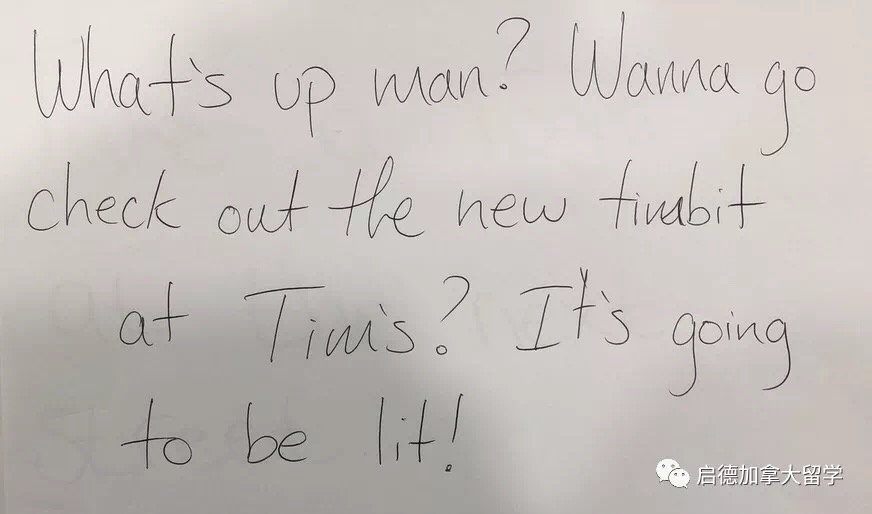 What's up man? Wanna go
check out the new timbit
at Tim's? It's going
to be lit!
启德加拿大留学